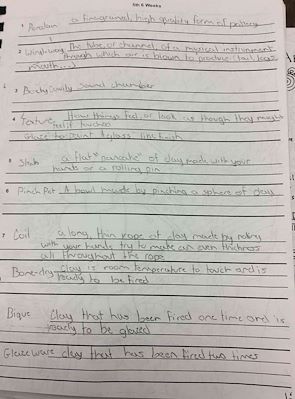 5th 6 Weeks
1 Porcelain a fine grained, high quality form of pottery
2 Windway The tube or channel of a musical instrument
through which air is blown to produce
mouth
3 Body Cavity Sound chamber
4 Texture How things feel, or look as though they might
feel if touched
Glaze to paint a glass like finish
5 Slab a flat "pancake" of clay made with your
hands or a rolling pin
6 Pinch Pot A bowl made by pinching a sphere of clay
7 Coil a long, thin rope of clay made by rolling
with your hands, try to make an even thickness
all throughout the rope
Bone-dry Clay is room temperature to touch and is
ready to be fired
Bique Clay that has been fired one time and is
ready to be glazed
Glazeware clay that has been fired two times